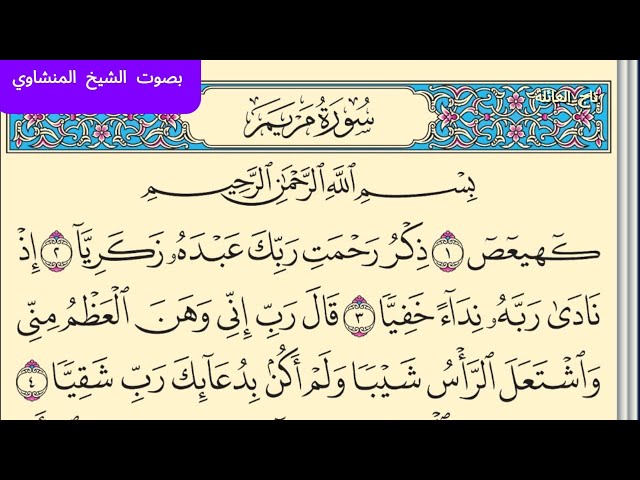 بصوت الشيخ المنشاوي
تاج_العائلة
سُورَةُ مَرْيَمَ
بِسْمِ ٱللَّهِ ٱلرَّحْمَٰنِ ٱلرَّحِيمِ
كٓهيعٓصٓ ١ ذِكْرُ رَحْمَتِ رَبِّكَ عَبْدَهُۥ زَكَرِيَّآ ٢ إِذْ
نَادَىٰ رَبَّهُۥ نِدَآءً خَفِيًّا ٣ قَالَ رَبِّ إِنِّى وَهَنَ ٱلْعَظْمُ مِنِّى
وَٱشْتَعَلَ ٱلرَّأْسُ شَيْبًا وَلَمْ أَكُنۢ بِدُعَآئِكَ رَبِّ شَقِيًّا ٤